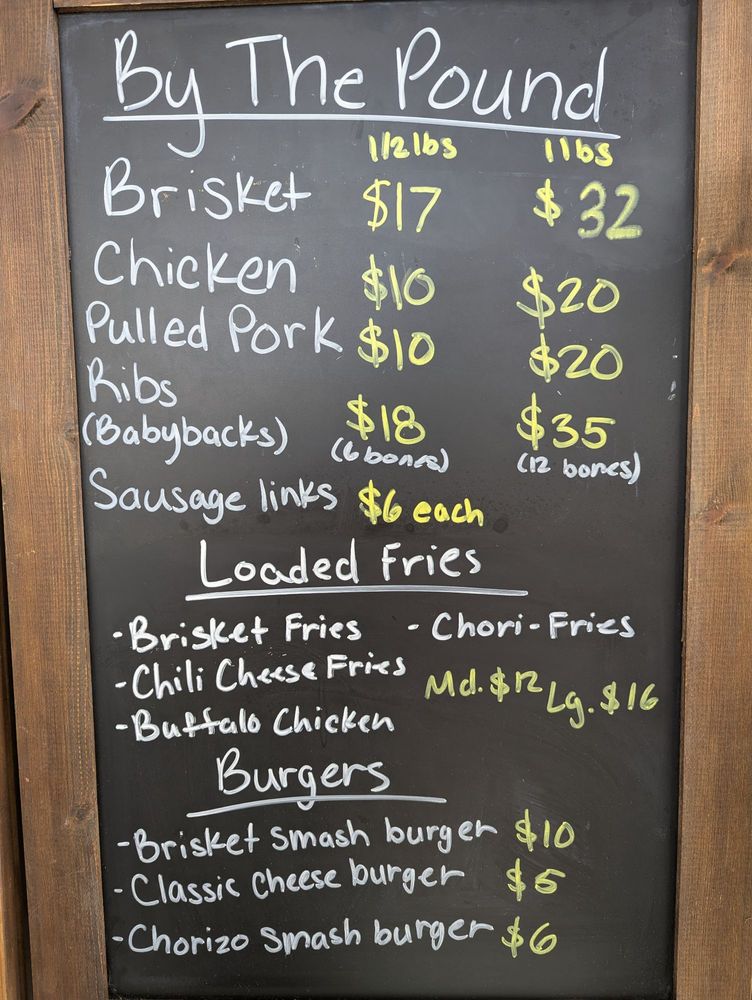 By The Pound
1/2lbs 1lbs
Brisket $17 $32
Chicken $10 $20
Pulled Pork $10 $20
Ribs
(Babybacks) $18 $35
(6 bones) (12 bones)
Sausage links $6 each
Loaded Fries
-Brisket Fries - Chori-Fries
-Chili Cheese Fries Md. $12 Lg. $16
-Buffalo Chicken
Burgers
-Brisket Smash burger $10
-Classic Cheese burger $5
-Chorizo Smash burger $6